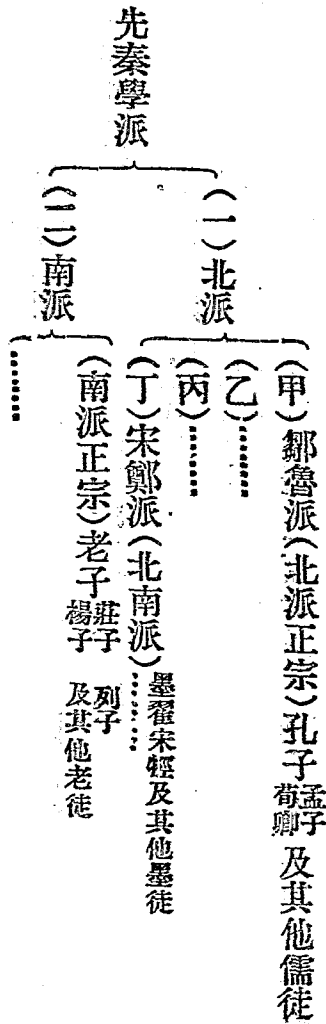 先秦學派
（一）北派
（甲）鄒魯派（北派正宗）孔子 孟子 荀卿 及其他儒徒
（乙）………
（丙）………
（丁）宋鄭派（北南派） 墨翟宋牼及其他墨徒 ………
（二）南派
（南派正宗）老子 莊子 列子 楊子 及其他老徒
………